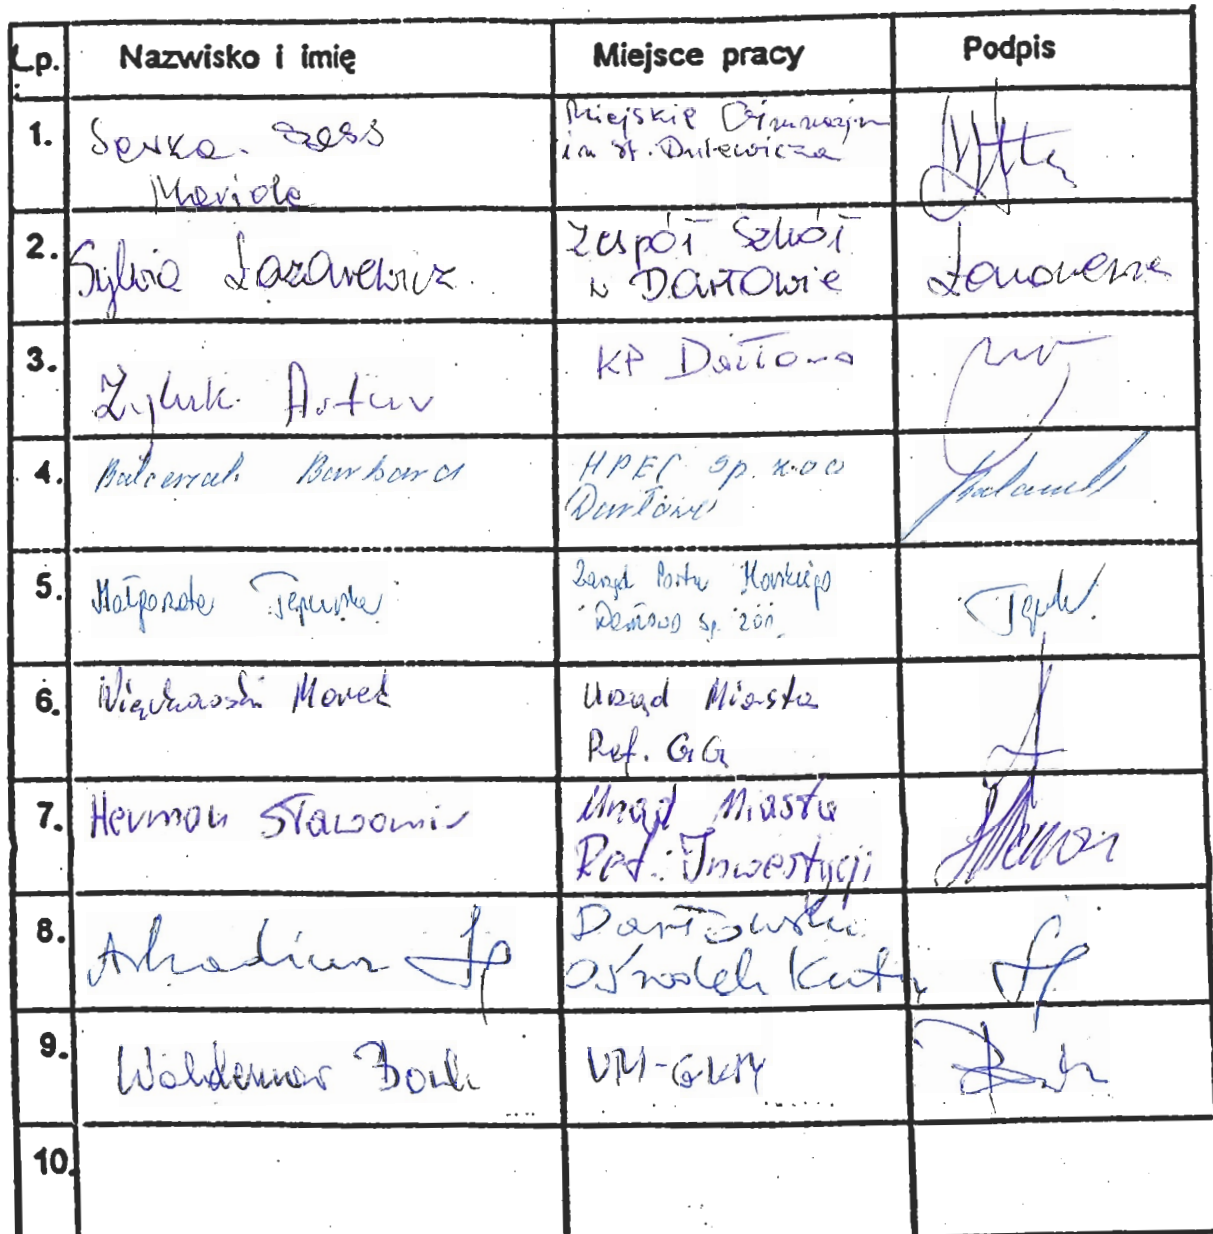 Lp. Nazwisko i imię Miejsce pracy Podpis
1. Miejskie Gimnazjum
im St. Dulewicza
Mariola
2. Sylwia Łazarewicz Zespół Szkół
w Darłowie
3. Żyluk Artur KP Darłowo
4. Balcerzak Barbara MPEC Sp. z.o.o
Darłowo
5. Małgorzata Zarząd Portu Morskiego
Darłowo Sp. zoo.
6. Więckowski Marek Urząd Miasta
Ref. GG
7. Herman Sławomir Urząd Miasta
Ref. Inwestycji Herman
8. Arkadiusz Darłowski
Ośrodek Kultu
9. Waldemar Bork UM-GKM
10.